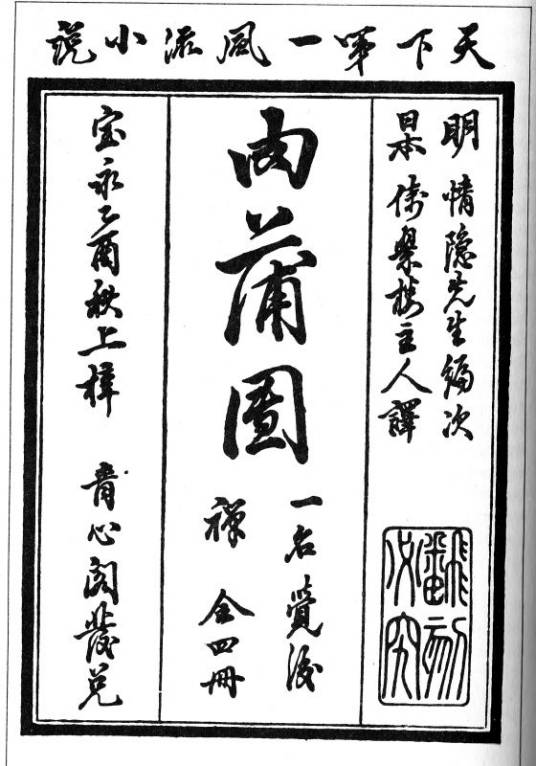 天下第一風流小説
明 情隠先生編次
日本 倚翠楼主人譯
肉蒲團
一名覺後
禅 全四冊
宝永乙酉秋上梓 青心閣發兌
飜刻
必究